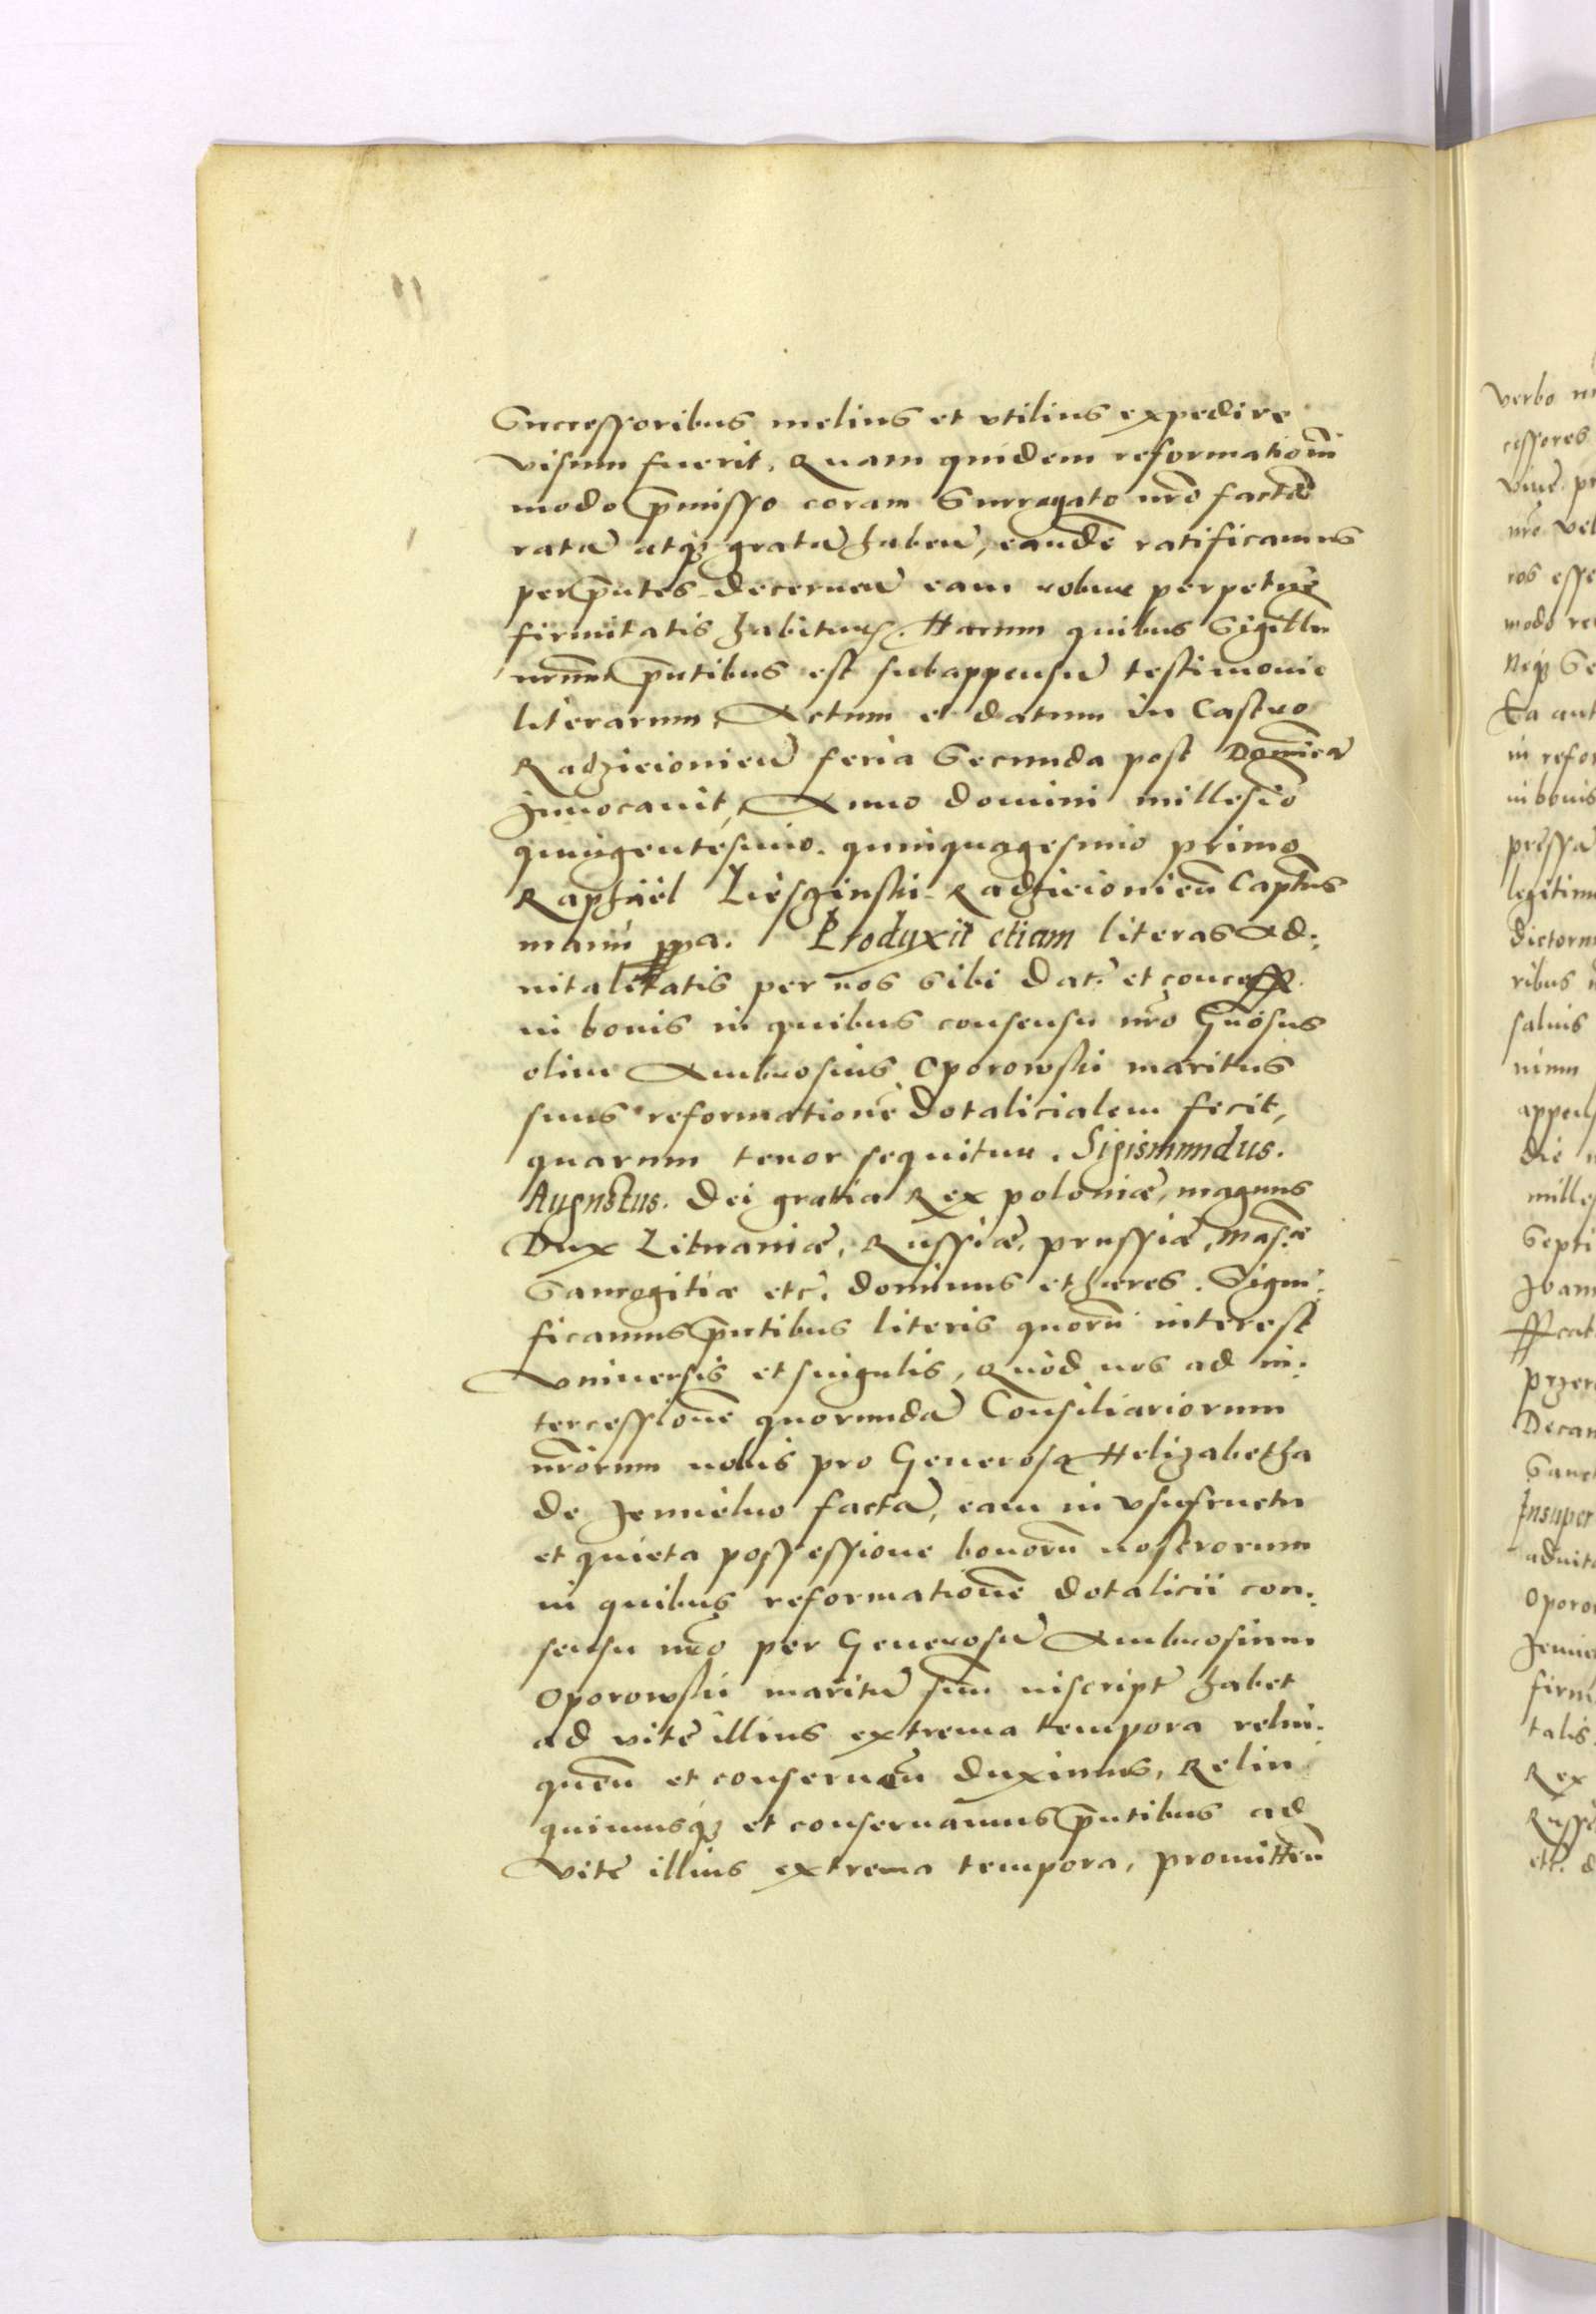 Successoribus melius et vtilius expedire
visum fuerit, Quam quidem reformationẽ
modo p̃misso coram Surrogato nr̃o factã
ratã atqȝ gratã habeñ, eandẽ ratificamus
per p̃ntes decerneñ eam robur perpetuẽ
firmitatis habiturã. Harum quibus Sigillũ
nrũm p̃ntibus est subappensũ testimonio
literarum, Actum et datum in Castro
Radzieiovieñ feria Secunda post Dominicã
Jnuocauit, Anno domini millesĩo
quingentésimo. quinquagesimo primo
Raphaël Liesczinski Radzieiovieñ Captñus
manu ppa. Produxit etiam literas Ad:
uitalitatis per nos sibi dat. et concess.
in bonis in quibus consensu nr̃o Gñosus
olim Ambrosius Oporowski maritus
suus reformationẽ dotalicialem fecit,
quarum tenor sequitur. Sigismundus.
Augustus. Dei gratia Rex poloniæ, magnus
Dux Lituaniæ, Russiæ, prussiæ, Mas.æ
Samogitiæ etc̃. dominus et hæres. Signi:
ficamus p̃ntibus literis quorũ interest
vniuersis et singulis, Quòd nos ad in:
tercessionẽ quorundã Consiliariorum
nr̃orum nobis pro Generosa Helizabetha
de Jemielno factã, eam in vsufructu
et quieta possessione bonorũ nostrorum
in quibus reformationẽ dotalicii con:
sensu nr̃o per Generosũ Ambrosium
Oporowski maritũ suũ inscriptẽ habet
ad vitẽ illius extrema tempora relin:
queñ et conseruañ duximus, Relin
quimusqȝ et conseruamus p̃ntibus ad
vitẽ illius extrema tempora, promitteñ
verbo
cessores
nr̃o vel
modo
in bonis
legitim
dictorum
ribus
saluis
die
mille
Septi
Insuper
Oporo
firm
talis
Rex
etc. d